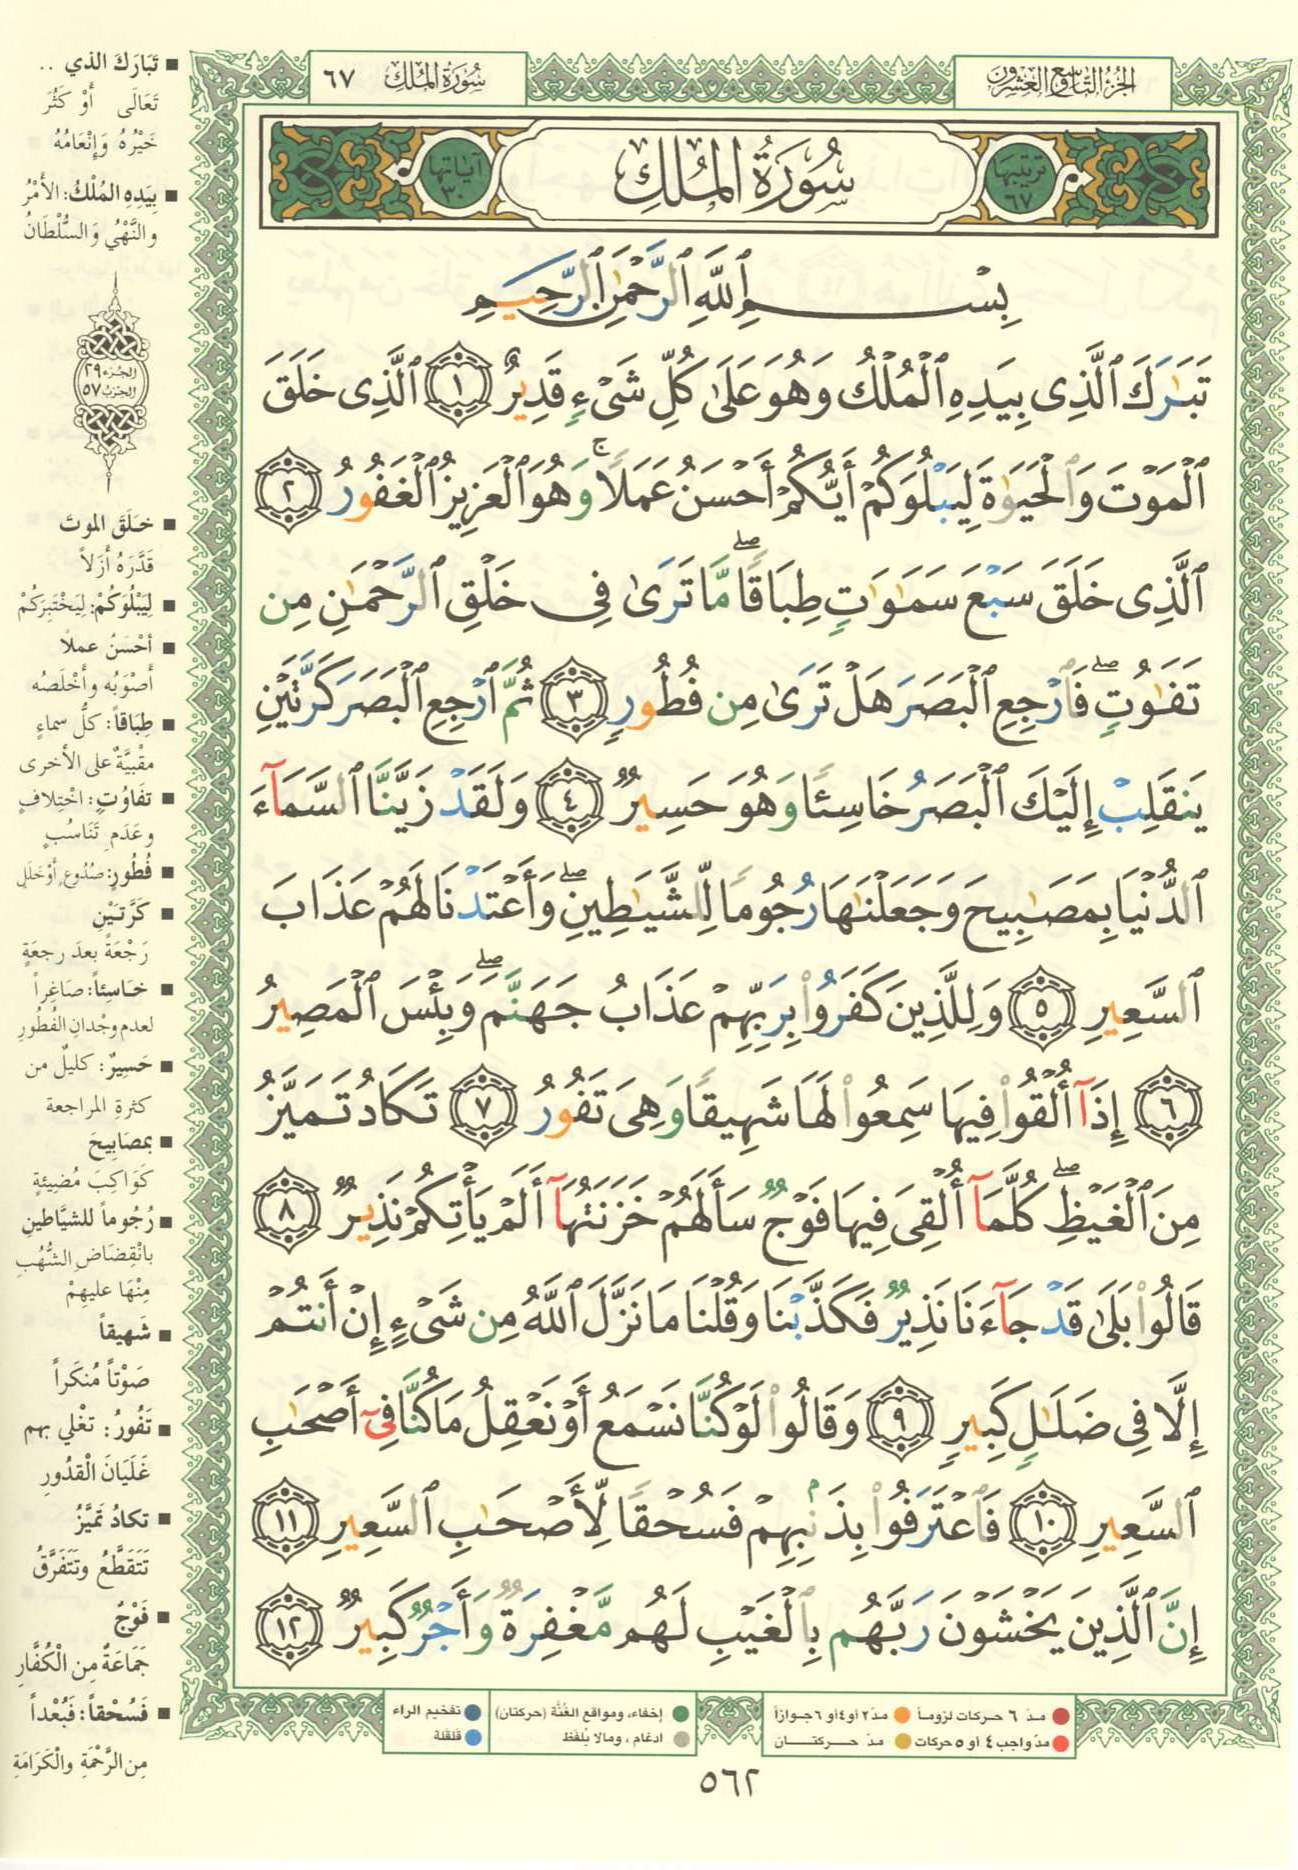 الجزء التاسع والعشرون
سورة الملك ٦٧
ترتيبها ٦٧
سُورَةُ المُلكِ
آياتها ٣٠
بِسْمِ ٱللَّهِ ٱلرَّحْمَٰنِ ٱلرَّحِيمِ
تَبَٰرَكَ ٱلَّذِى بِيَدِهِ ٱلْمُلْكُ وَهُوَ عَلَىٰ كُلِّ شَىْءٍ قَدِيرٌ ١ ٱلَّذِى خَلَقَ
ٱلْمَوْتَ وَٱلْحَيَوٰةَ لِيَبْلُوَكُمْ أَيُّكُمْ أَحْسَنُ عَمَلًا ۚ وَهُوَ ٱلْعَزِيزُ ٱلْغَفُورُ ٢
ٱلَّذِى خَلَقَ سَبْعَ سَمَٰوَٰتٍ طِبَاقًا ۖ مَّا تَرَىٰ فِى خَلْقِ ٱلرَّحْمَٰنِ مِن
تَفَٰوُتٍ ۖ فَٱرْجِعِ ٱلْبَصَرَ هَلْ تَرَىٰ مِن فُطُورٍ ٣ ثُمَّ ٱرْجِعِ ٱلْبَصَرَ كَرَّتَيْنِ
يَنقَلِبْ إِلَيْكَ ٱلْبَصَرُ خَاسِئًا وَهُوَ حَسِيرٌ ٤ وَلَقَدْ زَيَّنَّا ٱلسَّمَآءَ
ٱلدُّنْيَا بِمَصَٰبِيحَ وَجَعَلْنَٰهَا رُجُومًا لِّلشَّيَٰطِينِ ۖ وَأَعْتَدْنَا لَهُمْ عَذَابَ
ٱلسَّعِيرِ ٥ وَلِلَّذِينَ كَفَرُوا۟ بِرَبِّهِمْ عَذَابُ جَهَنَّمَ ۖ وَبِئْسَ ٱلْمَصِيرُ
٦ إِذَآ أُلْقُوا۟ فِيهَا سَمِعُوا۟ لَهَا شَهِيقًا وَهِىَ تَفُورُ ٧ تَكَادُ تَمَيَّزُ
مِنَ ٱلْغَيْظِ ۖ كُلَّمَآ أُلْقِىَ فِيهَا فَوْجٌ سَأَلَهُمْ خَزَنَتُهَآ أَلَمْ يَأْتِكُمْ نَذِيرٌ ٨
قَالُوا۟ بَلَىٰ قَدْ جَآءَنَا نَذِيرٌ فَكَذَّبْنَا وَقُلْنَا مَا نَزَّلَ ٱللَّهُ مِن شَىْءٍ إِنْ أَنتُمْ
إِلَّا فِى ضَلَٰلٍ كَبِيرٍ ٩ وَقَالُوا۟ لَوْ كُنَّا نَسْمَعُ أَوْ نَعْقِلُ مَا كُنَّا فِىٓ أَصْحَٰبِ
ٱلسَّعِيرِ ١٠ فَٱعْتَرَفُوا۟ بِذَنۢبِهِمْ فَسُحْقًا لِّأَصْحَٰبِ ٱلسَّعِيرِ ١١
إِنَّ ٱلَّذِينَ يَخْشَوْنَ رَبَّهُم بِٱلْغَيْبِ لَهُم مَّغْفِرَةٌ وَأَجْرٌ كَبِيرٌ ١٢
■ تَبَارَكَ الذي ..
تَعَالَى أَوْ كَثُرَ
خَيْرُهُ وَإِنْعَامُهُ
■ بِيَدِهِ المُلْكُ: الأَمْرُ
والنَّهْيُ وَالسُّلْطَانُ
الجزء ٢٩
الحزب ٥٧
■ خَلَقَ الموتَ
قَدَّرَهُ أَزَلاً
■ لِيَبْلُوَكُمْ: لِيَخْتَبِرَكُمْ
■ أحْسَنُ عملاً
أَصْوَبُه وأَخْلَصُه
■ طِبَاقاً: كلُّ سماءٍ
مقْبيَّةٌ على الأخرى
■ تفَاوُتٍ: اخْتِلافٍ
وعَدَمِ تَنَاسُبٍ
■ فُطُورٍ: صُدُوعٍ أَوْ خَلَلٍ
■ كَرَّتَيْنِ
رَجْعَةً بعدَ رجعَةٍ
■ خَاسِئاً: صَاغِراً
لعدم وجْدانِ الفُطُورِ
■ حَسِيرٌ: كليلٌ من
كثرةِ المراجعة
■ بمصَابِيحَ
كَوَاكِبَ مُضِيئةٍ
■ رُجُوماً للشيَّاطينِ
بانْقِضَاضِ الشُّهُبِ
مِنْهَا عليهِمْ
■ شَهيقاً
صَوْتاً مُنكَراً
■ تَفُورُ: تَغْلي بهم
غَلَيَانَ الْقدُورِ
■ تكادُ تَمَيَّزُ
تَتَقَطَّعُ وتَتَفَرَّقُ
■ فَوْجٌ
جَمَاعَةٌ مِن الْكُفَّارِ
■ فَسُحْقاً: فَبُعْداً
مِن الرَّحْمَةِ والْكَرَامَةِ
مدّ ٦ حركات لزوماً مدّ ٢ أو ٤ أو ٦ جوازاً إخفاء، ومواقع الغُنَّة (حركتان) تفخيم الراء
مدّ واجب ٤ أو ٥ حركات مدّ حركتان ادغام، ومالا يُلفَظ قلقلة
٥٦٢